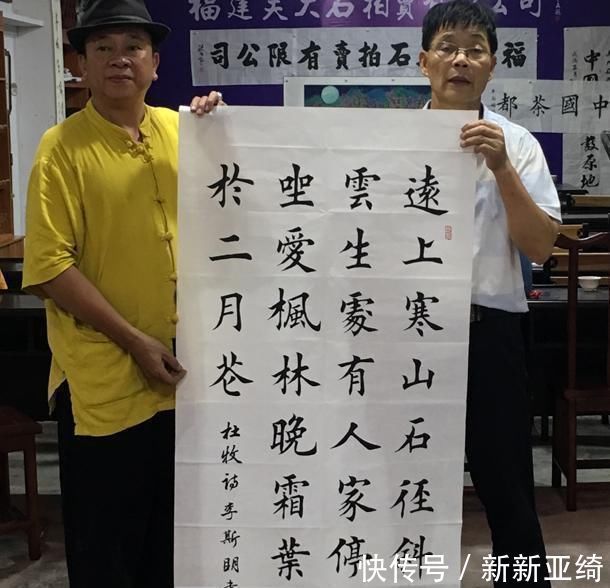 福建天大石拍賣有限公司
福石拍賣有限公司
中國茶都
中國
發原地
遠上寒山石徑斜
雲生處有人家停
坐愛楓林晚霜葉
於二月花
杜牧詩李斯明書
快传号 / 新新亚绮